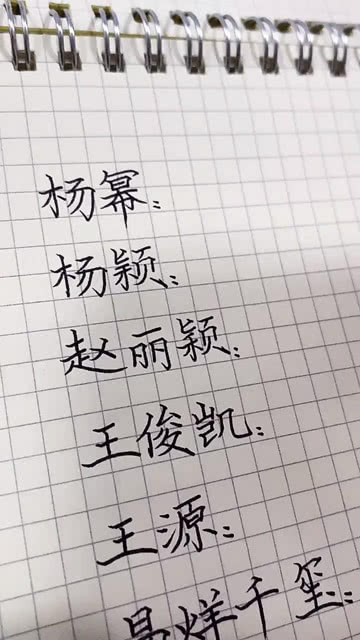 杨幂：
杨颖：
赵丽颖：
王俊凯：
王源：
易烊千玺：